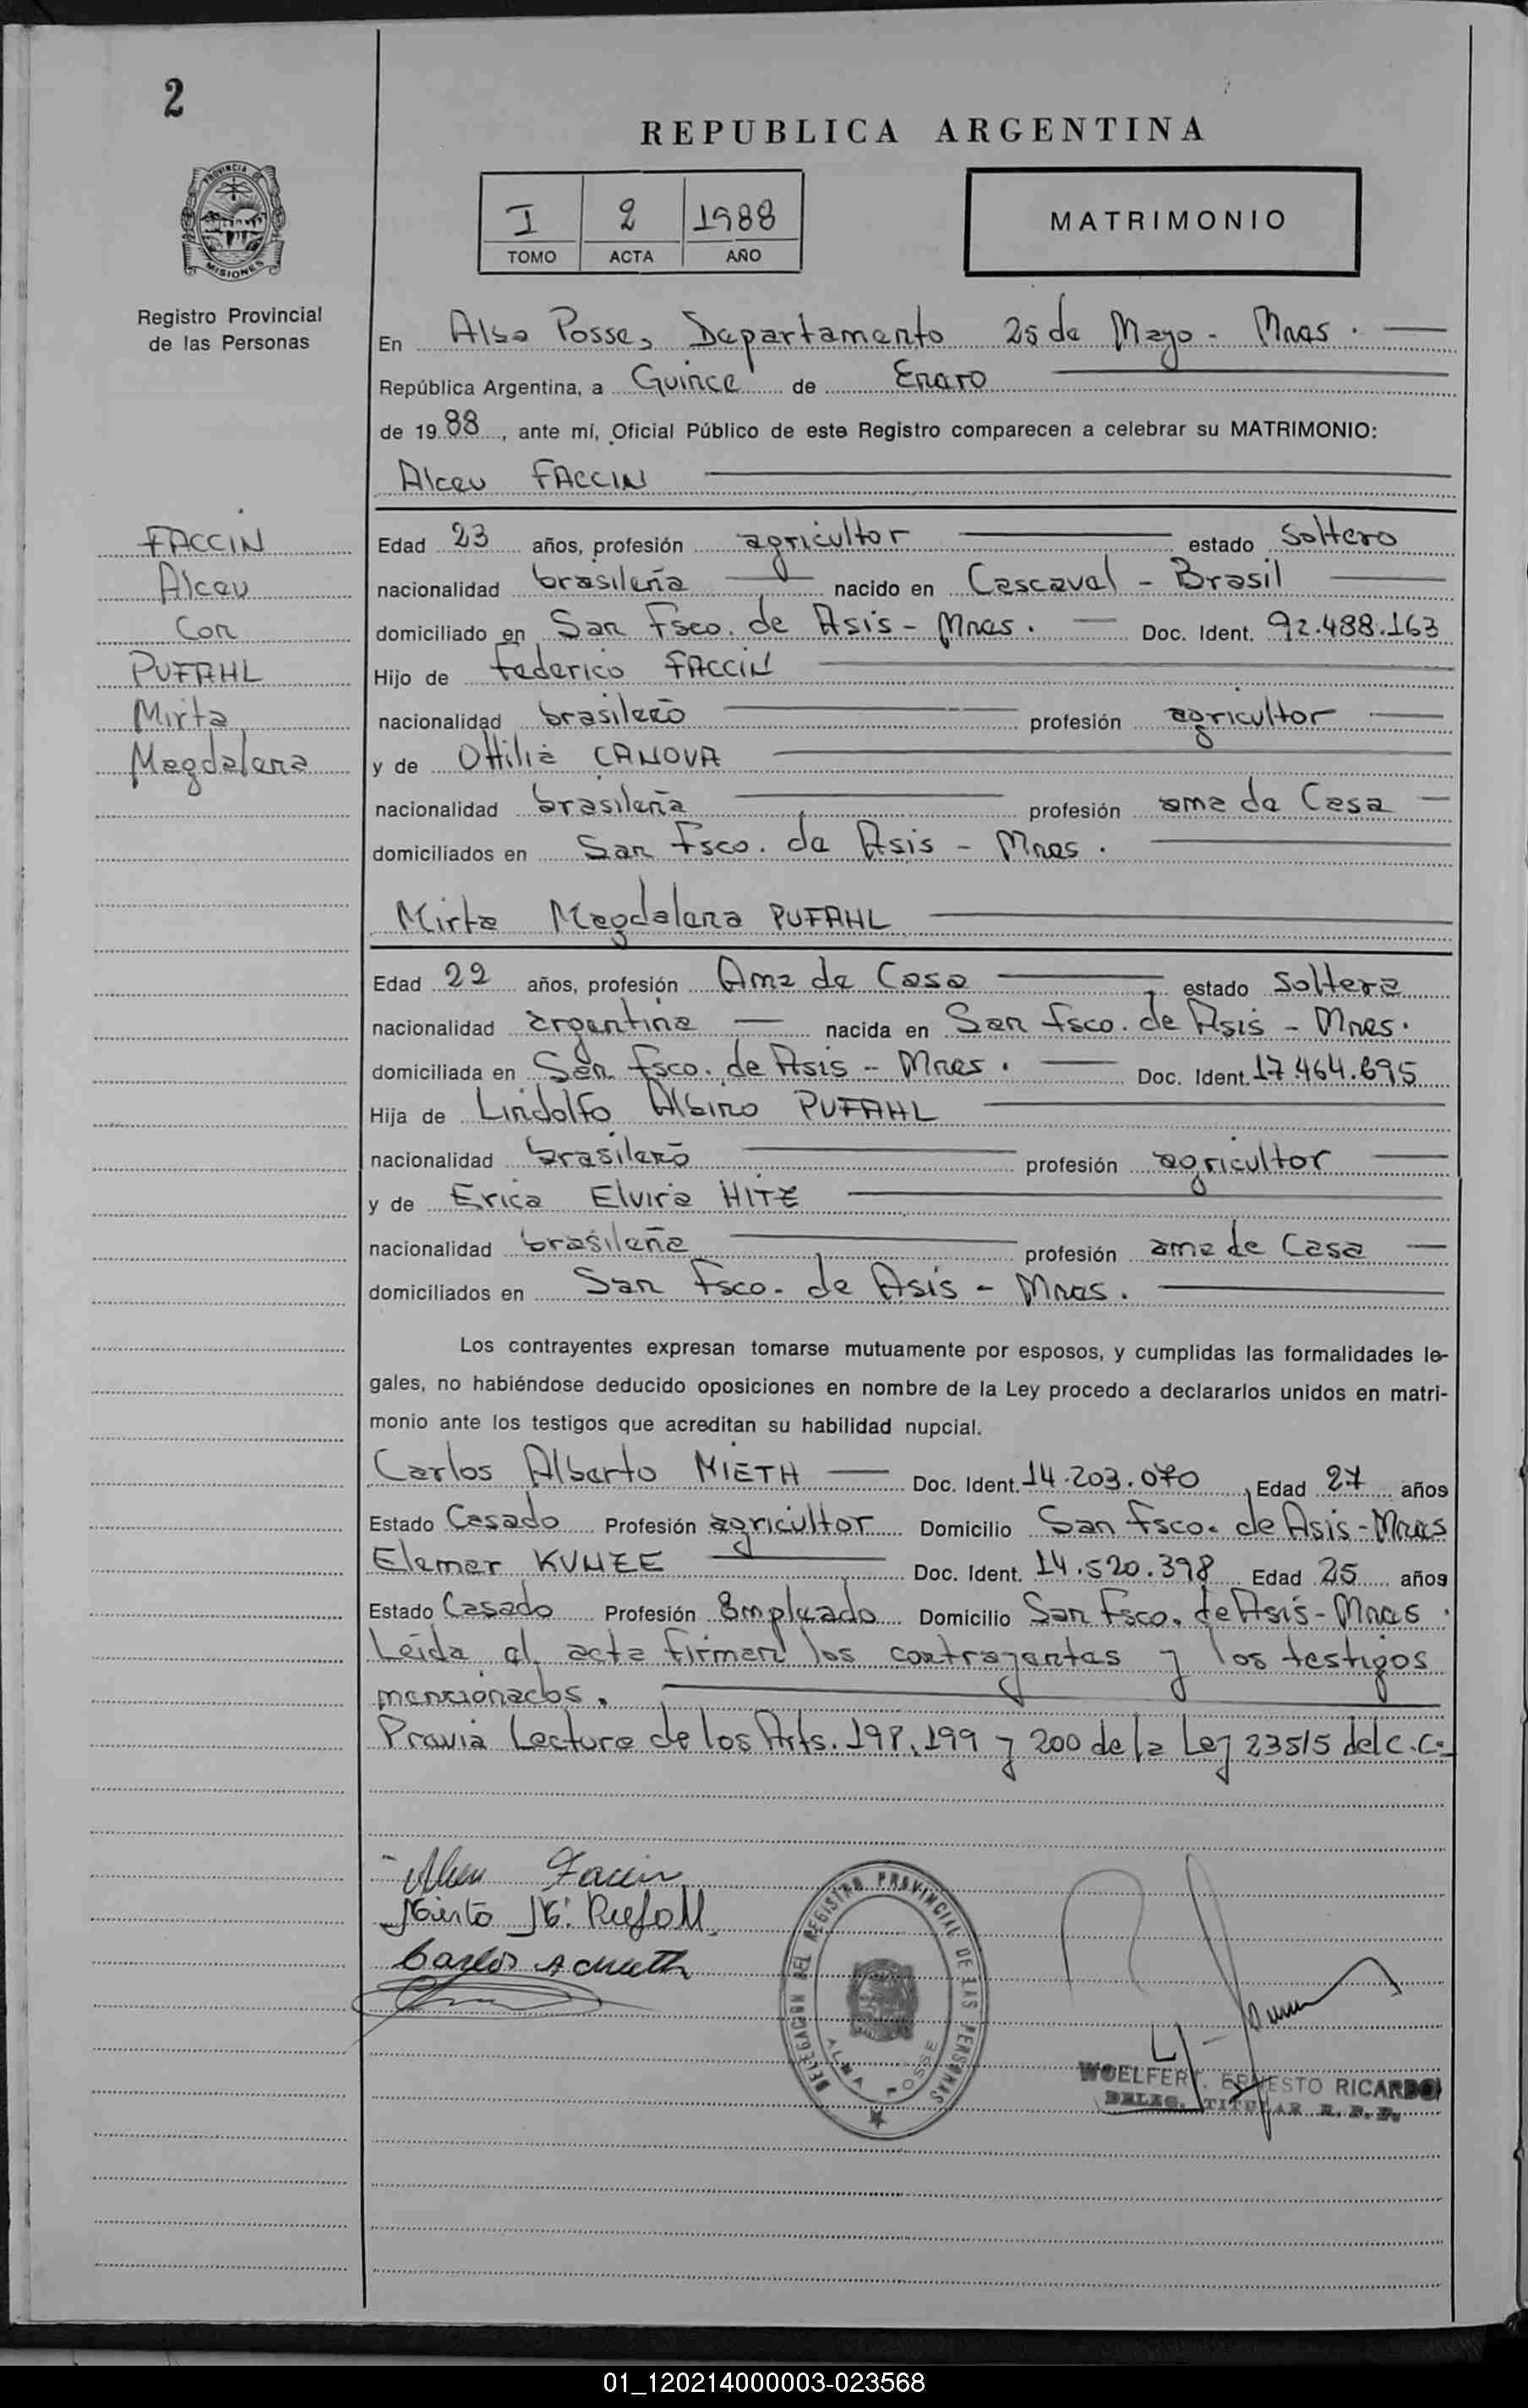 2
REPUBLICA ARGENTINA
PROVINCIA DE
MISIONES
I 2 1988
TOMO ACTA AÑO
MATRIMONIO
Registro Provincial
de las Personas
En Alba Posse, Departamento 25 de Mayo - Mnes.
República Argentina, a Quince de Enero
de 1988, ante mí, Oficial Público de este Registro comparecen a celebrar su MATRIMONIO:
Alceu FACCIN
FACCIN
Alceu
Con
PUFAHL
Mirta
Magdalena
Edad 23 años, profesión agricultor estado Soltero
nacionalidad brasileña nacido en Cascavel - Brasil
domiciliado en San Fsco. de Asis - Mnes. Doc. Ident. 92.488.163
Hijo de Federico FACCIN
nacionalidad brasileño profesión agricultor
y de Ottilia CANOVA
nacionalidad brasileña profesión ama de Casa
domiciliados en San Fsco. de Asis - Mnes.
Mirta Magdalena PUFAHL
Edad 22 años, profesión Ama de Casa estado Soltera
nacionalidad argentina nacida en San Fsco. de Asis - Mnes.
domiciliada en San Fsco. de Asis - Mnes. Doc. Ident. 17.464.695
Hija de Lindolfo Albino PUFAHL
nacionalidad brasileño profesión agricultor
y de Erica Elvira HITZ
nacionalidad brasileña profesión ama de Casa
domiciliados en San Fsco. de Asis - Mnes.
Los contrayentes expresan tomarse mutuamente por esposos, y cumplidas las formalidades le-
gales, no habiéndose deducido oposiciones en nombre de la Ley procedo a declararlos unidos en matri-
monio ante los testigos que acreditan su habilidad nupcial.
Carlos Alberto MIETH Doc. Ident. 14.203.070 Edad 27 años
Estado Casado Profesión agricultor Domicilio San Fsco. de Asis - Mnes
Elemer KUNZE Doc. Ident. 14.520.398 Edad 25 años
Estado Casado Profesión Empleado Domicilio San Fsco. de Asis - Mnes.
Leida el acta firman los contrayentes y los testigos
mencionados.
Previa Lectura de los Arts. 198, 199 y 200 de la Ley 23515 del C.C.
Alceu Faccin
Mirta M. Pufahl
Carlos A Mieth
DELEGACION DEL REGISTRO PROVINCIAL DE LAS PERSONAS
ALBA POSSE
WOELFERT, ERNESTO RICARDO
DELEG. TITULAR R. P. P.
01_120214000003-023568